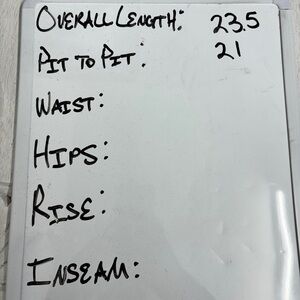 OVERALL LENGTH: 23.5
PIT TO PIT: 21
WAIST:
HIPS:
RISE:
INSEAM: